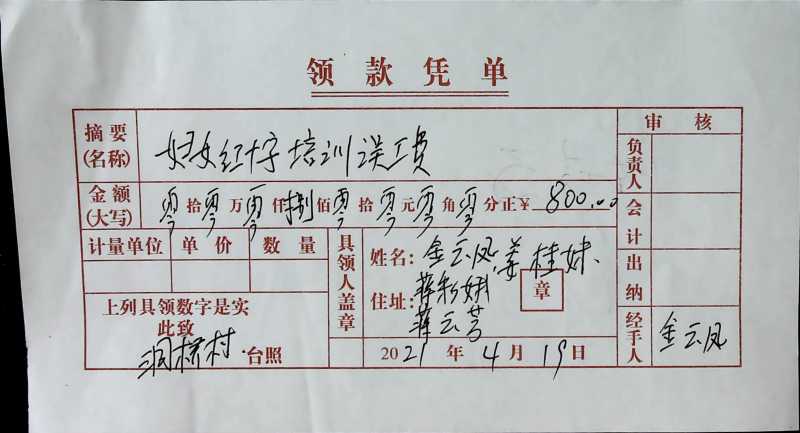 领款凭单
摘要(名称) 妇女红十字培训误工费
金额(大写) 零拾零万零仟捌佰零拾零元零角零分正¥ 800.00
计量单位 单价 数量
上列具领数字是实
此致
洞桥村 台照
具领人盖章
姓名: 金云凤 姜桂妹
住址: 蒋彩娥
蒋云芳
章
2021年4月19日
审核
负责人
会计
出纳
经手人 金云凤